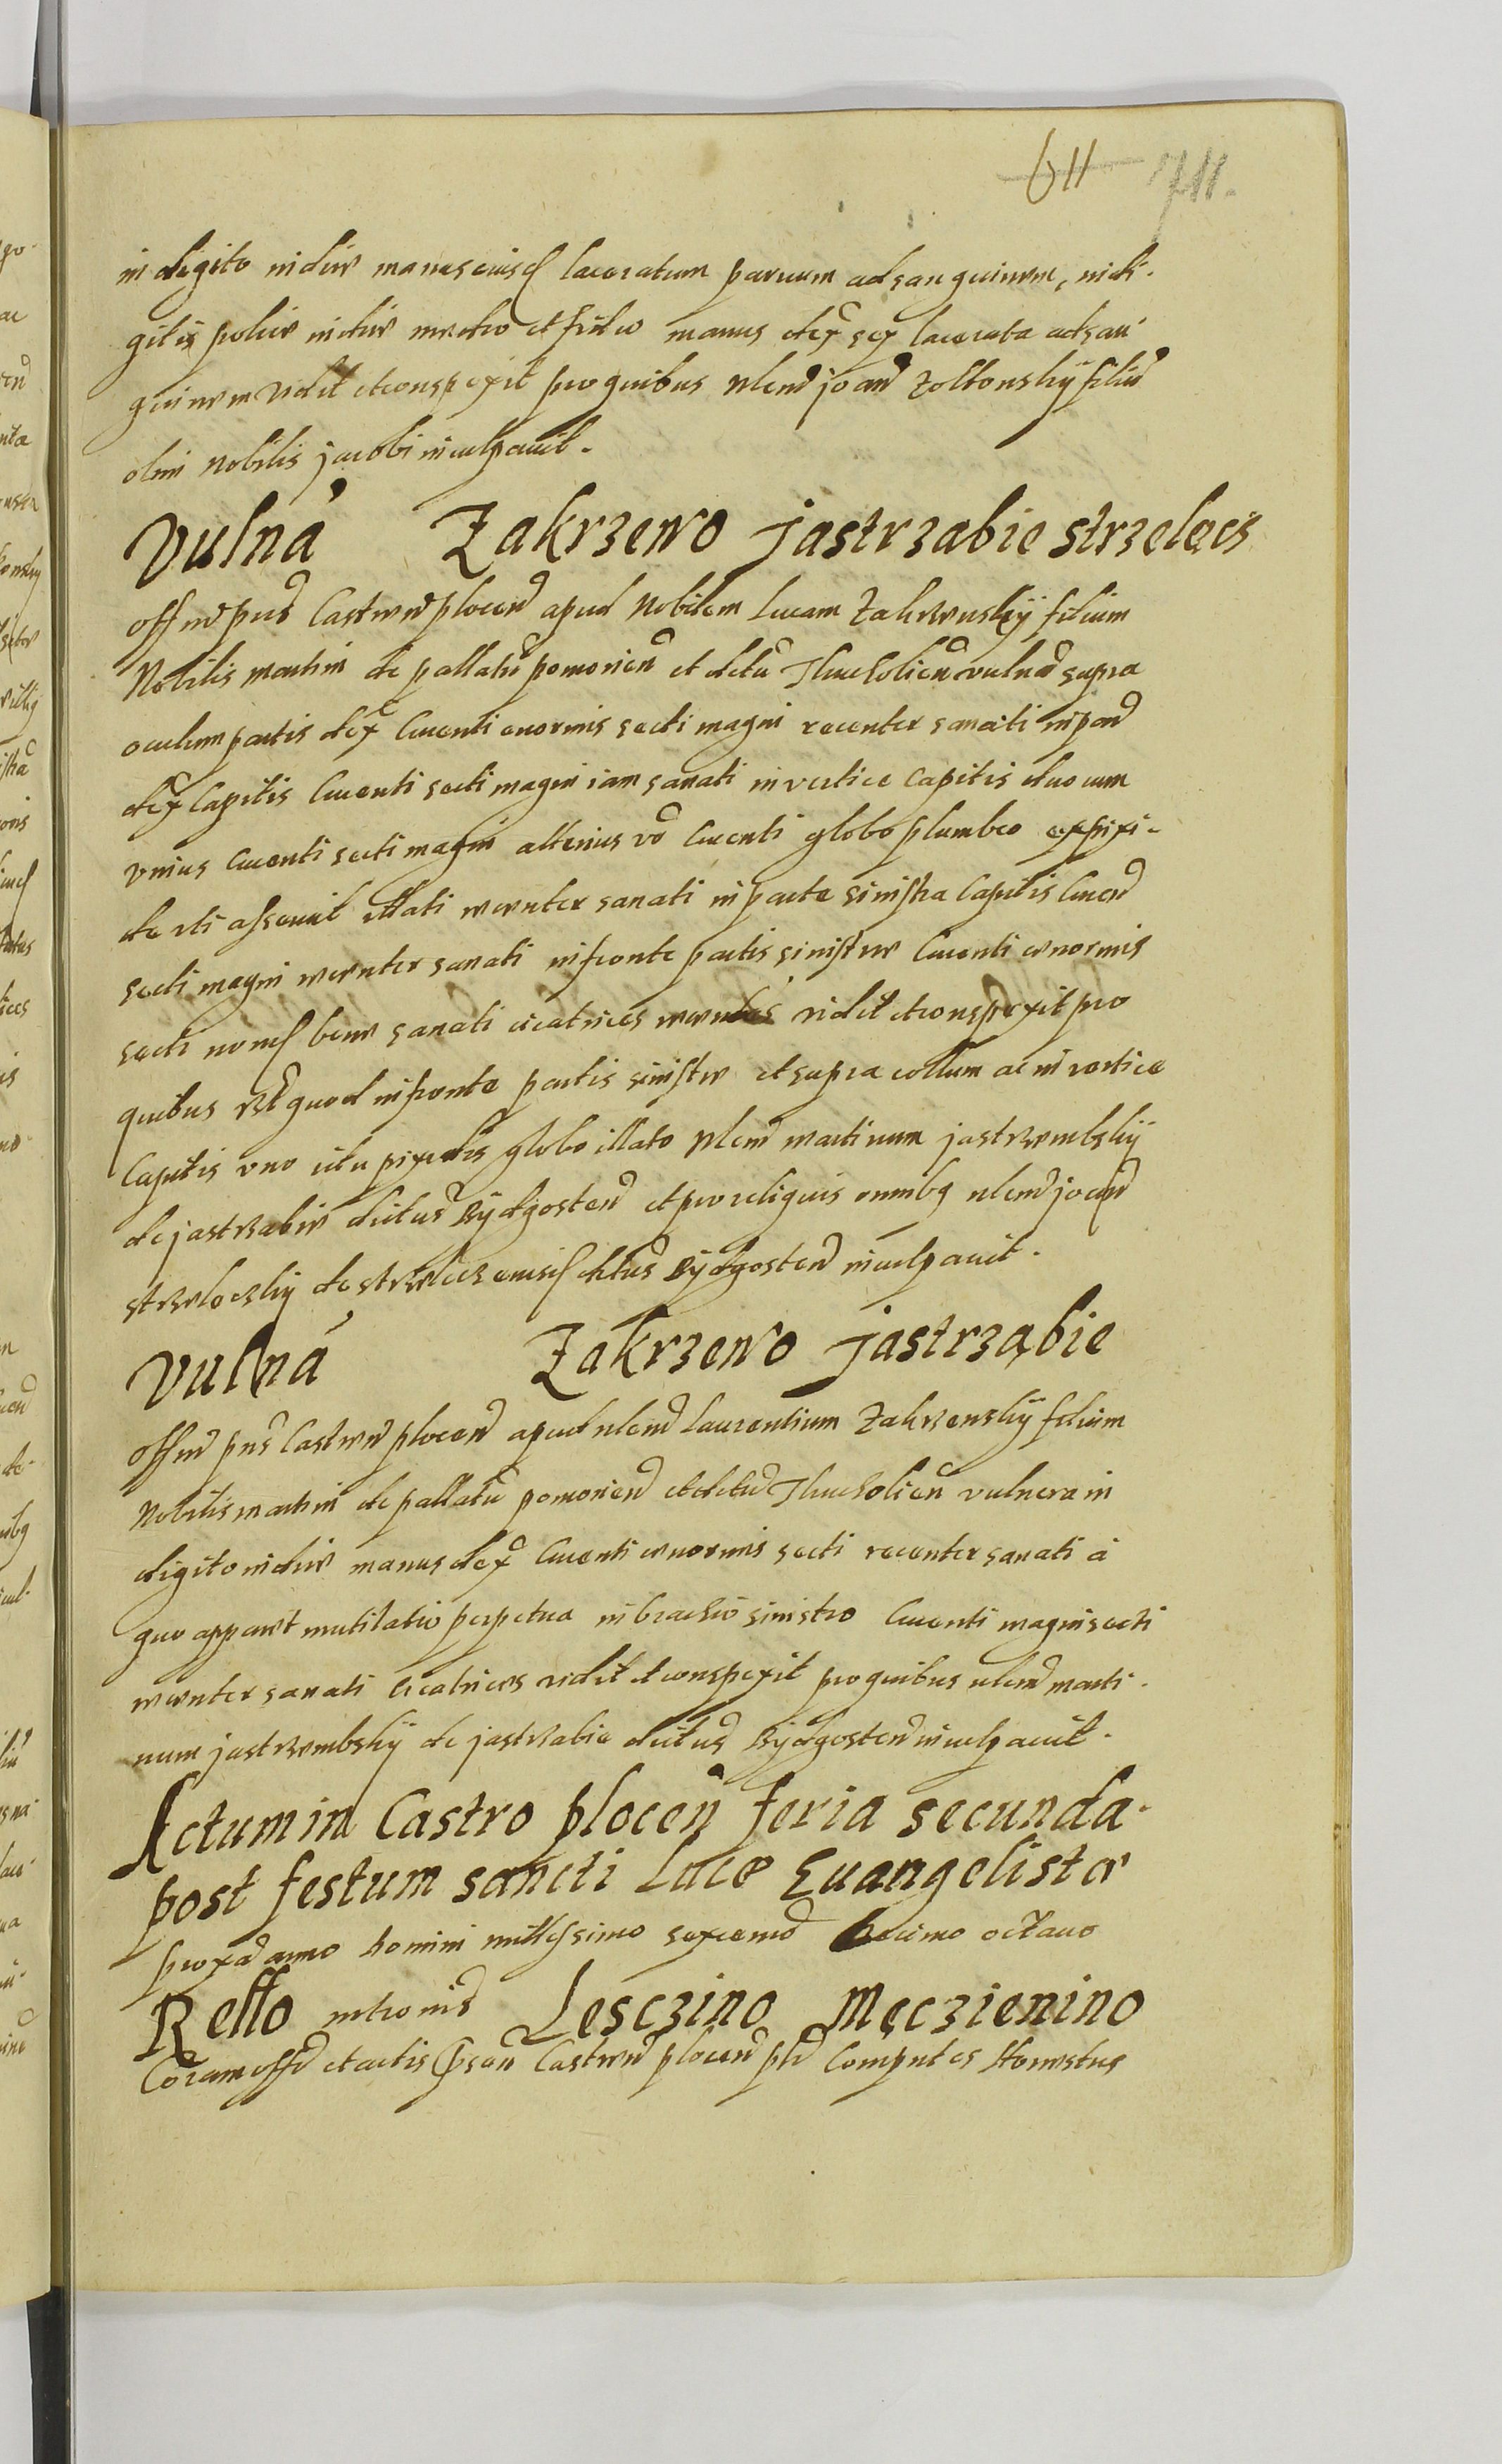 611 711.
in digito indice manus eiusd laceratum paruum ad sanguinem, in di-
gitis police indice medio et fidico manus dex sex lacerata ad san
guinem vidit et conspexit pro quibus Nlem joan Zoltonskij filiu
olim nobilis jacobi inculpauit.
Vulna Zakrzewo jastrzabie strzelecs
Offm pns Castren plocen apud Nobilem Lucam Zakrzenskij filium
Nobilis martini de pallatu pomorien et dctu Thucholien vulna supra
oculum partis dex cruenti enormis secti magni recenter sanati in par
dex Capitis cruenti secti magni iam sanati in vertice capitis duorum
vnius cruenti secti magni alterius vo cruenti globo plumbeo ex pixi-
de vti asseruit illati recenter sanati in parte sinistra Capitis cruen
secti magni recenter sanati in fronte partis sinistre cruenti enormis
secti bene sanati cicatrices recentes vidit et conspexit pro
quibus vt quod in fronte partis sinistre et supra collum ac in vertice
Capitis vno ictu pixidis globo illato Nlem martinum jastrzembskij
de jastrzabie dictus Bydgosten et pro reliquis omnibq nlem joan
strzeloczkij de strzelecz eiusd dctus Bydgosten inculpauit.
Vulna Zakrzewo jastrząbie
Offm pns Castren plocen apud nlem Laurentium Zakrzenskij filium
Nobilis martini de pallatu pomorien et dctu Thucholien vulnera in
digito indice manus dex cruenti enormis secti recenter sanati a
quo apparet mutilatio perpetua in brachio sinistro cruenti magni secti
recenter sanati cicatrices vidit et conspexit pro quibus nlem marti-
num jastrzembskij de jastrzabie dictus Bydgosten inculpauit.
Actum in Castro plocen feria secunda
post festum sancti Luce Euangelistæ
proxa anno Domini millessimo sexcenmo Decimo octauo
Rello intronis Lesczino Męczienino
Coram offo et actis psen Castren plocen plr Comparens Honestus